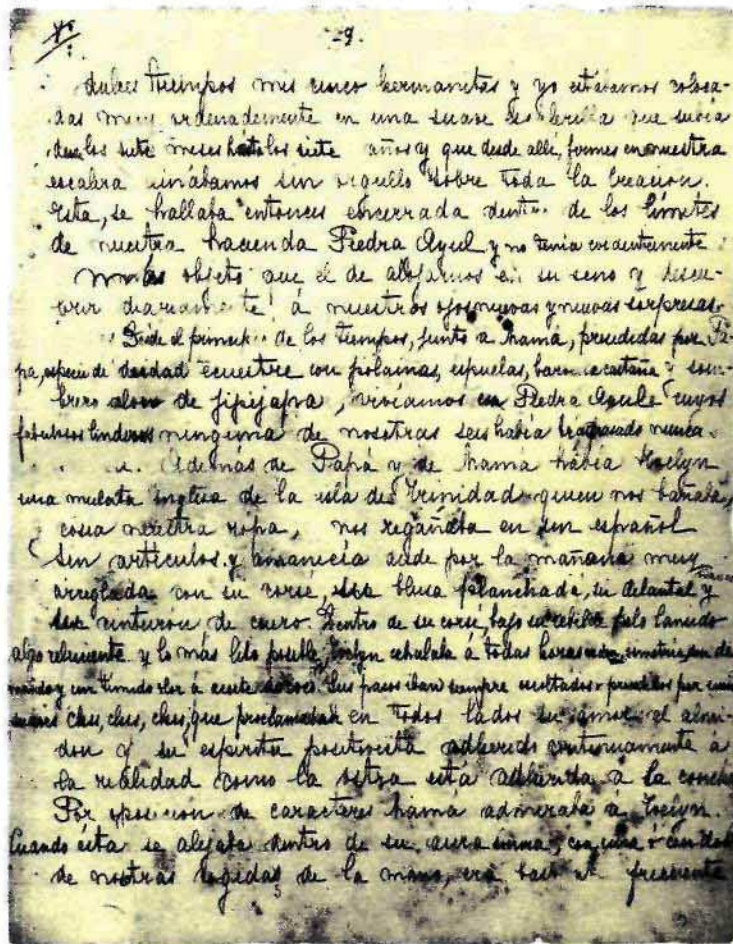 V:
29.
dulces tiempos mis cinco hermanitas y yo estábamos coloca-
das muy ordenadamente en una suave escalerilla que subía
desde los siete meses hasta los siete años y que desde allí, firmes en nuestra
escalera reinábamos sin orgullo sobre toda la Creación.
Esta, se hallaba entonces encerrada dentro de los límites
de nuestra hacienda Piedra Azul y no tenía evidentemente
más objeto que el de alojarnos en su seno y descu-
brir diariamente á nuestros ojos nuevas y nuevas sorpresas.
Desde el principio de los tiempos, junto a Mamá, presididas por Pa-
pá, especie de deidad ecuestre con polainas, espuelas, barba castaña y som-
brero alón de jipijapa, vivíamos en Piedra Azul cuyos
fabulosos linderos ninguna de nosotras seis había traspasado nunca.
Además de Papá y de Mamá había Evelyn
una mulata inglesa de la isla de Trinidad quien nos bañaba,
cosía nuestra ropa, nos regañaba en un español
sin artículos y amanecía desde por la mañana muy
arreglada con su corsé, su blusa planchada, su delantal y
su cinturón de cuero. Dentro de su corsé, bajo su rebelde pelo lanudo
algo reluciente y lo más liso posible, Evelyn exhalaba á todas horas orden, simetría, don de
mando y un tímido olor á aceite de coco. Sus pasos iban siempre escoltados o precedidos por unos
suaves chss, chss, chss, que proclamaban en todos lados su amor al almi-
dón y su espíritu positivista adherido continuamente á
la realidad como la ostra está adherida á la concha
Por oposición de caracteres Mamá admiraba á Evelyn.
Cuando ésta se alejaba dentro de su aura sonora, con una ó con dos
de nosotras cogidas de la mano, era bastante frecuente